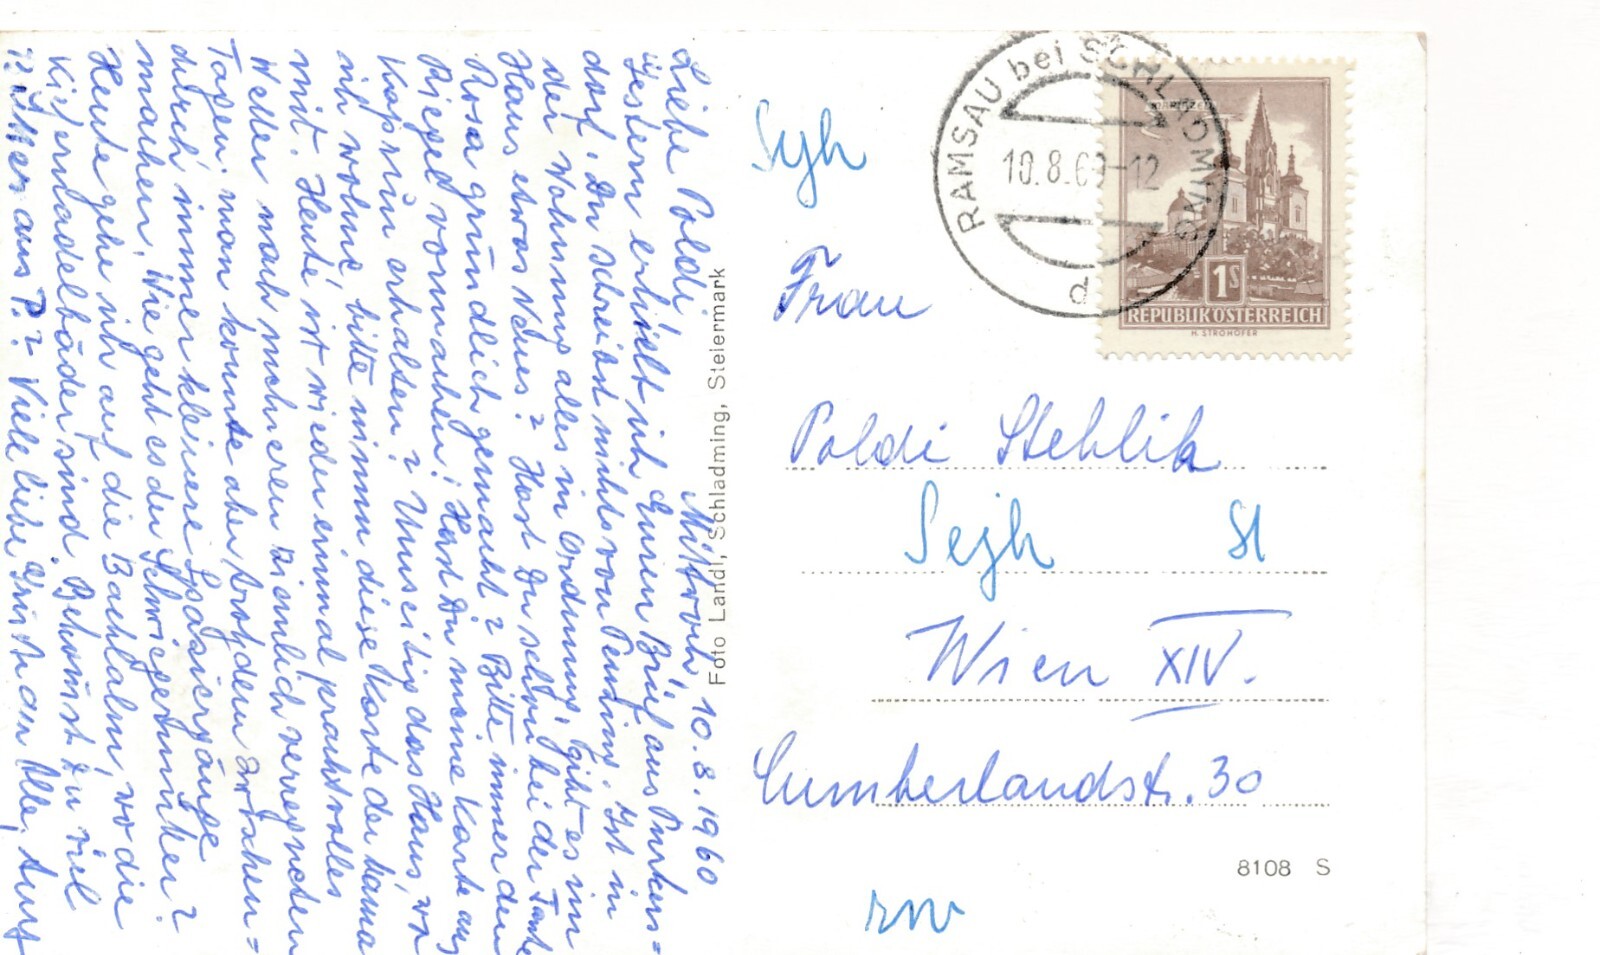 Mittwoch, 10.8.1960
Liebe Poldi!
Gestern erhielt ich Euren Brief aus Purkers=
dorf. Du schreibst nichts von Penzing. Ist in
der Wohnung alles in Ordnung, gibt es im
Haus etwas Neues? Hast Du schon bei der Tante
Rosa gründlich gemacht? Bitte immer den
Riegel vormachen! Hast Du meine Karte aus
Kaprun erhalten? Umseitig das Haus, wo
ich wohne, bitte nimm diese Karte der Mama
mit. Heute ist wieder einmal prachtvolles
Wetter nach mehreren ziemlich verregneten
Tagen, man konnte aber trotzdem zwischen=
durch immer kleinere Spaziergänge
machen. Wie geht es der Schwiegermutter?
Heute gehe ich auf die Bachlalm, wo die
Kiefernadelbäder sind. Bekommst Du viel
aus P.? Viele liebe Grüße an Alle,
Foto Landl, Schladming, Steiermark
RAMSAU bei SCHLADMING
10.8.60-12
d
MARIAZELL
1S
REPUBLIK ÖSTERREICH
H. STROHOFER
Frau
Poldi Stehlik
Wien XIV.
Cumberlandstr. 30
8108 S